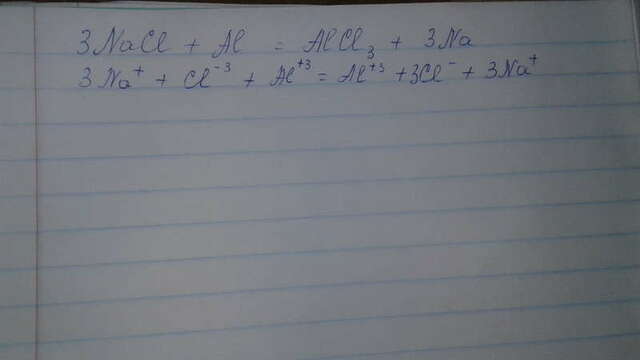 3NaCl + Al = AlCl³ + 3Na
3Na⁺ + Cl⁻³ + Al⁺³ = Al⁺³ + 3Cl⁻ + 3Na⁺